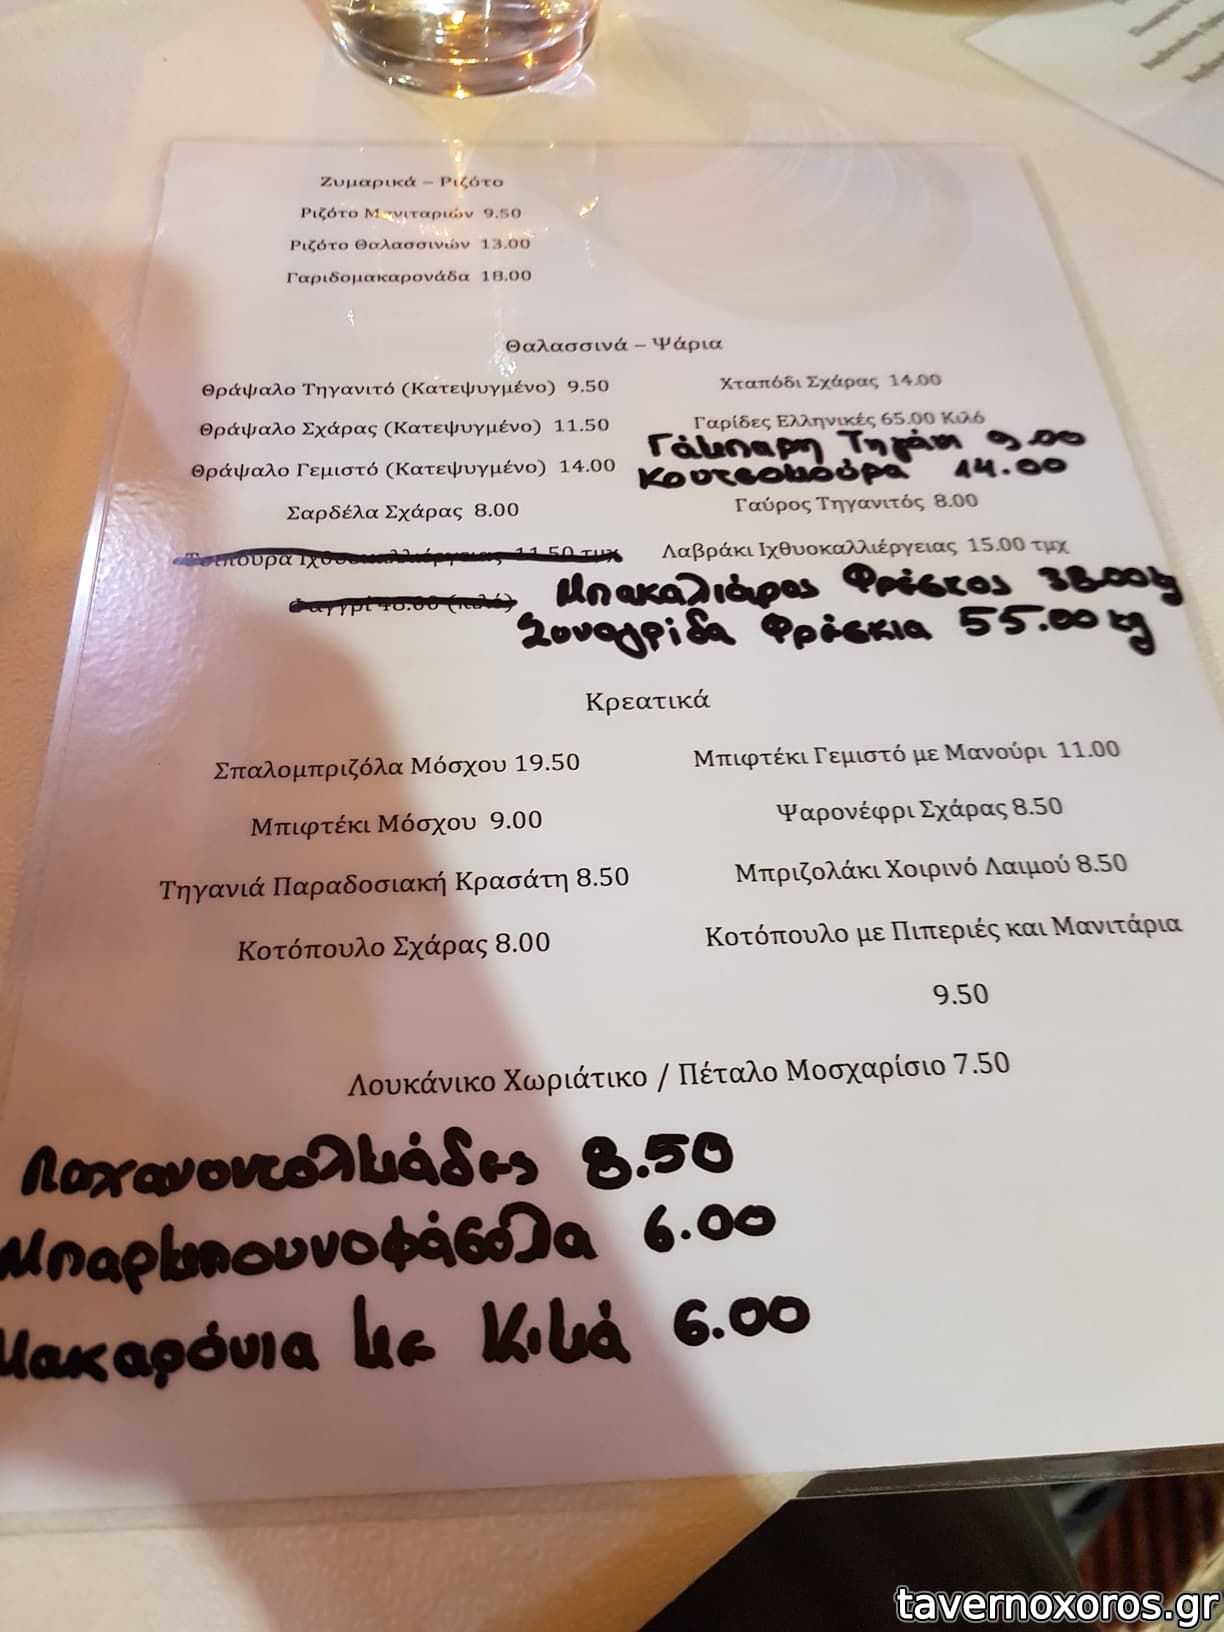 Ζυμαρικά – Ριζότο
Ριζότο Μανιταριών 9.50
Ριζότο Θαλασσινών 13.00
Γαριδομακαρονάδα 18.00
Θαλασσινά – Ψάρια
Θράψαλο Τηγανιτό (Κατεψυγμένο) 9.50
Χταπόδι Σχάρας 14.00
Θράψαλο Σχάρας (Κατεψυγμένο) 11.50
Γαρίδες Ελληνικές 65.00 Κιλό
Γάμπαρη Τηγάνι 9.00
Θράψαλο Γεμιστό (Κατεψυγμένο) 14.00
Κουτσομούρα 14.00
Σαρδέλα Σχάρας 8.00
Γαύρος Τηγανιτός 8.00
Τσιπούρα Ιχθυοκαλλιέργειας 11.50 τμχ
Λαβράκι Ιχθυοκαλλιέργειας 15.00 τμχ
Φαγγρί 48.00 (κιλό)
Μπακαλιάρος Φρέσκος 38.00 kg
Συναγρίδα Φρέσκια 55.00 kg
Κρεατικά
Σπαλομπριζόλα Μόσχου 19.50
Μπιφτέκι Γεμιστό με Μανούρι 11.00
Μπιφτέκι Μόσχου 9.00
Ψαρονέφρι Σχάρας 8.50
Τηγανιά Παραδοσιακή Κρασάτη 8.50
Μπριζολάκι Χοιρινό Λαιμού 8.50
Κοτόπουλο Σχάρας 8.00
Κοτόπουλο με Πιπεριές και Μανιτάρια
9.50
Λουκάνικο Χωριάτικο / Πέταλο Μοσχαρίσιο 7.50
Λαχανοντολμάδες 8.50
Μπαρμπουνοφάσολα 6.00
Μακαρόνια με Κιμά 6.00
tavernoxoros.gr